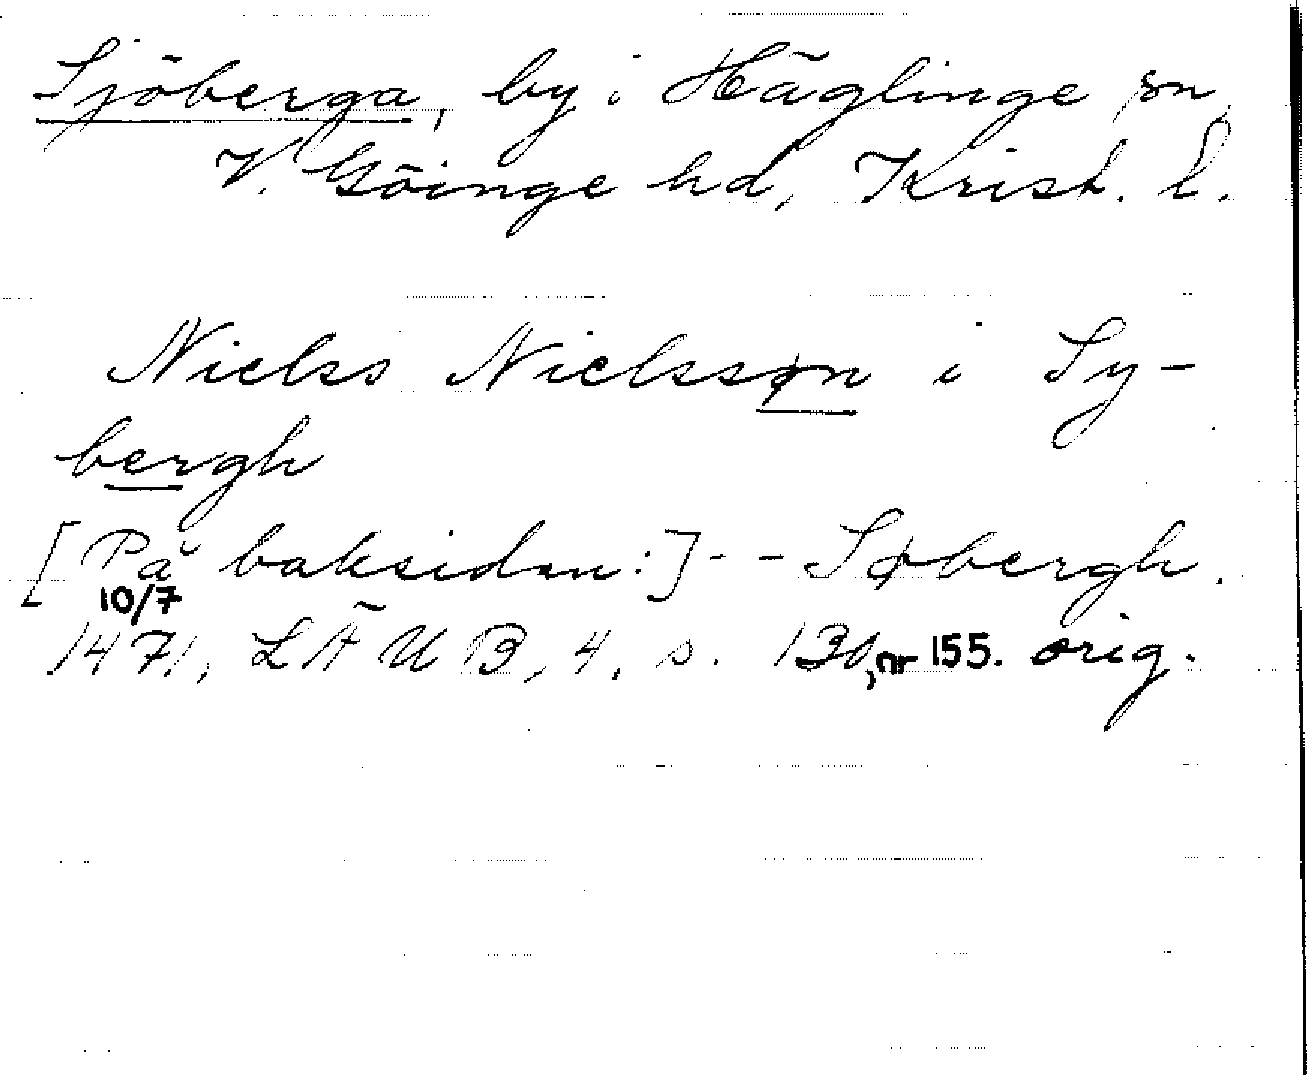 Sjöberga, by i Häglinge sn,
V. Göinge hd, Krist. l.
Nielss Nielssøn i Sy-
bergh
[På baksidan:] - - Søbergh.
10/7
1471, LÄUB, 4, s. 130, nr 155. orig.